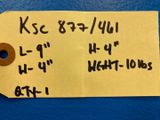 KSC 877/461
L-9" H-4"
W-4" WGHT-10 lbs
QTY-1